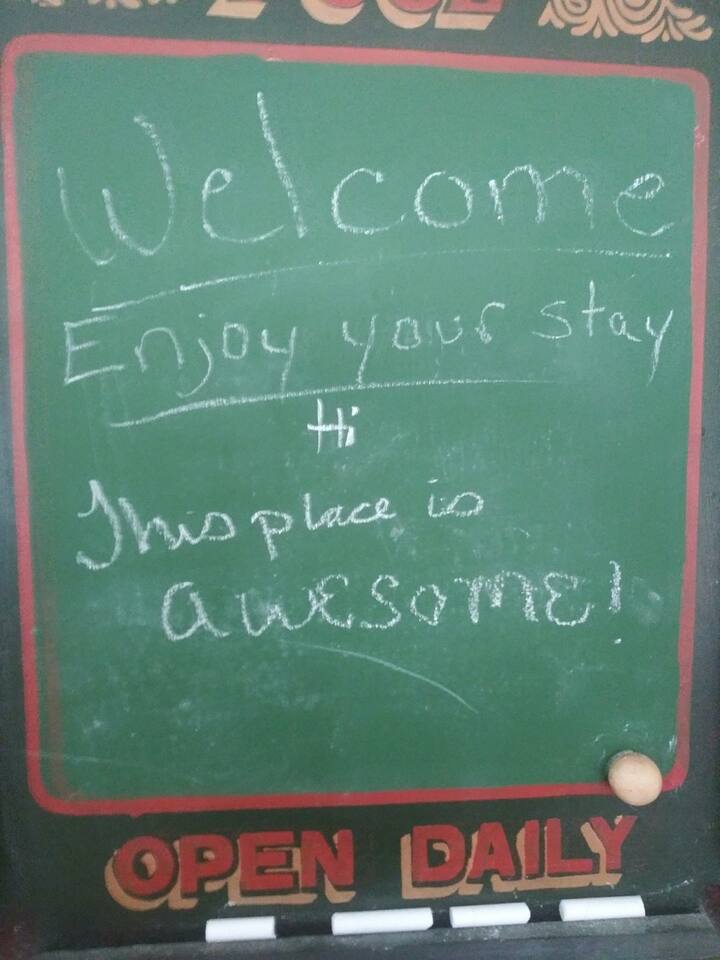 Welcome
Enjoy your stay
Hi
This place is
awesome!
OPEN DAILY